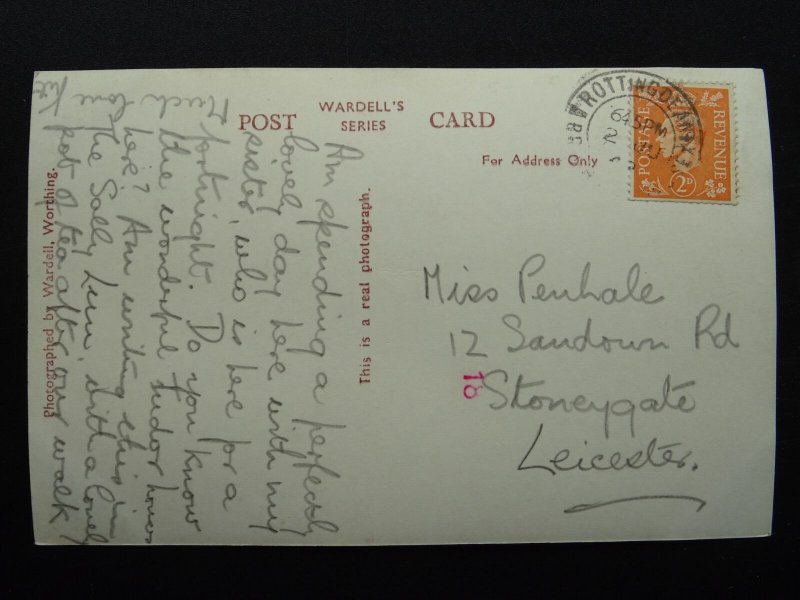 WARDELL'S
SERIES
POST CARD
For Address Only
ROTTINGDEAN
645PM
POSTAGE REVENUE
2D
Photographed by Wardell, Worthing.
This is a real photograph.
Am spending a perfectly
lovely day here with my
sister, who is here for a
fortnight. Do you know
the wonderful Tudor houses
here? Am writing this in
The Sally Lunn, with a lovely
pot of tea after our walk!
Much love
Miss Penhale
12 Sandown Rd
Stoneygate
Leicester.
18